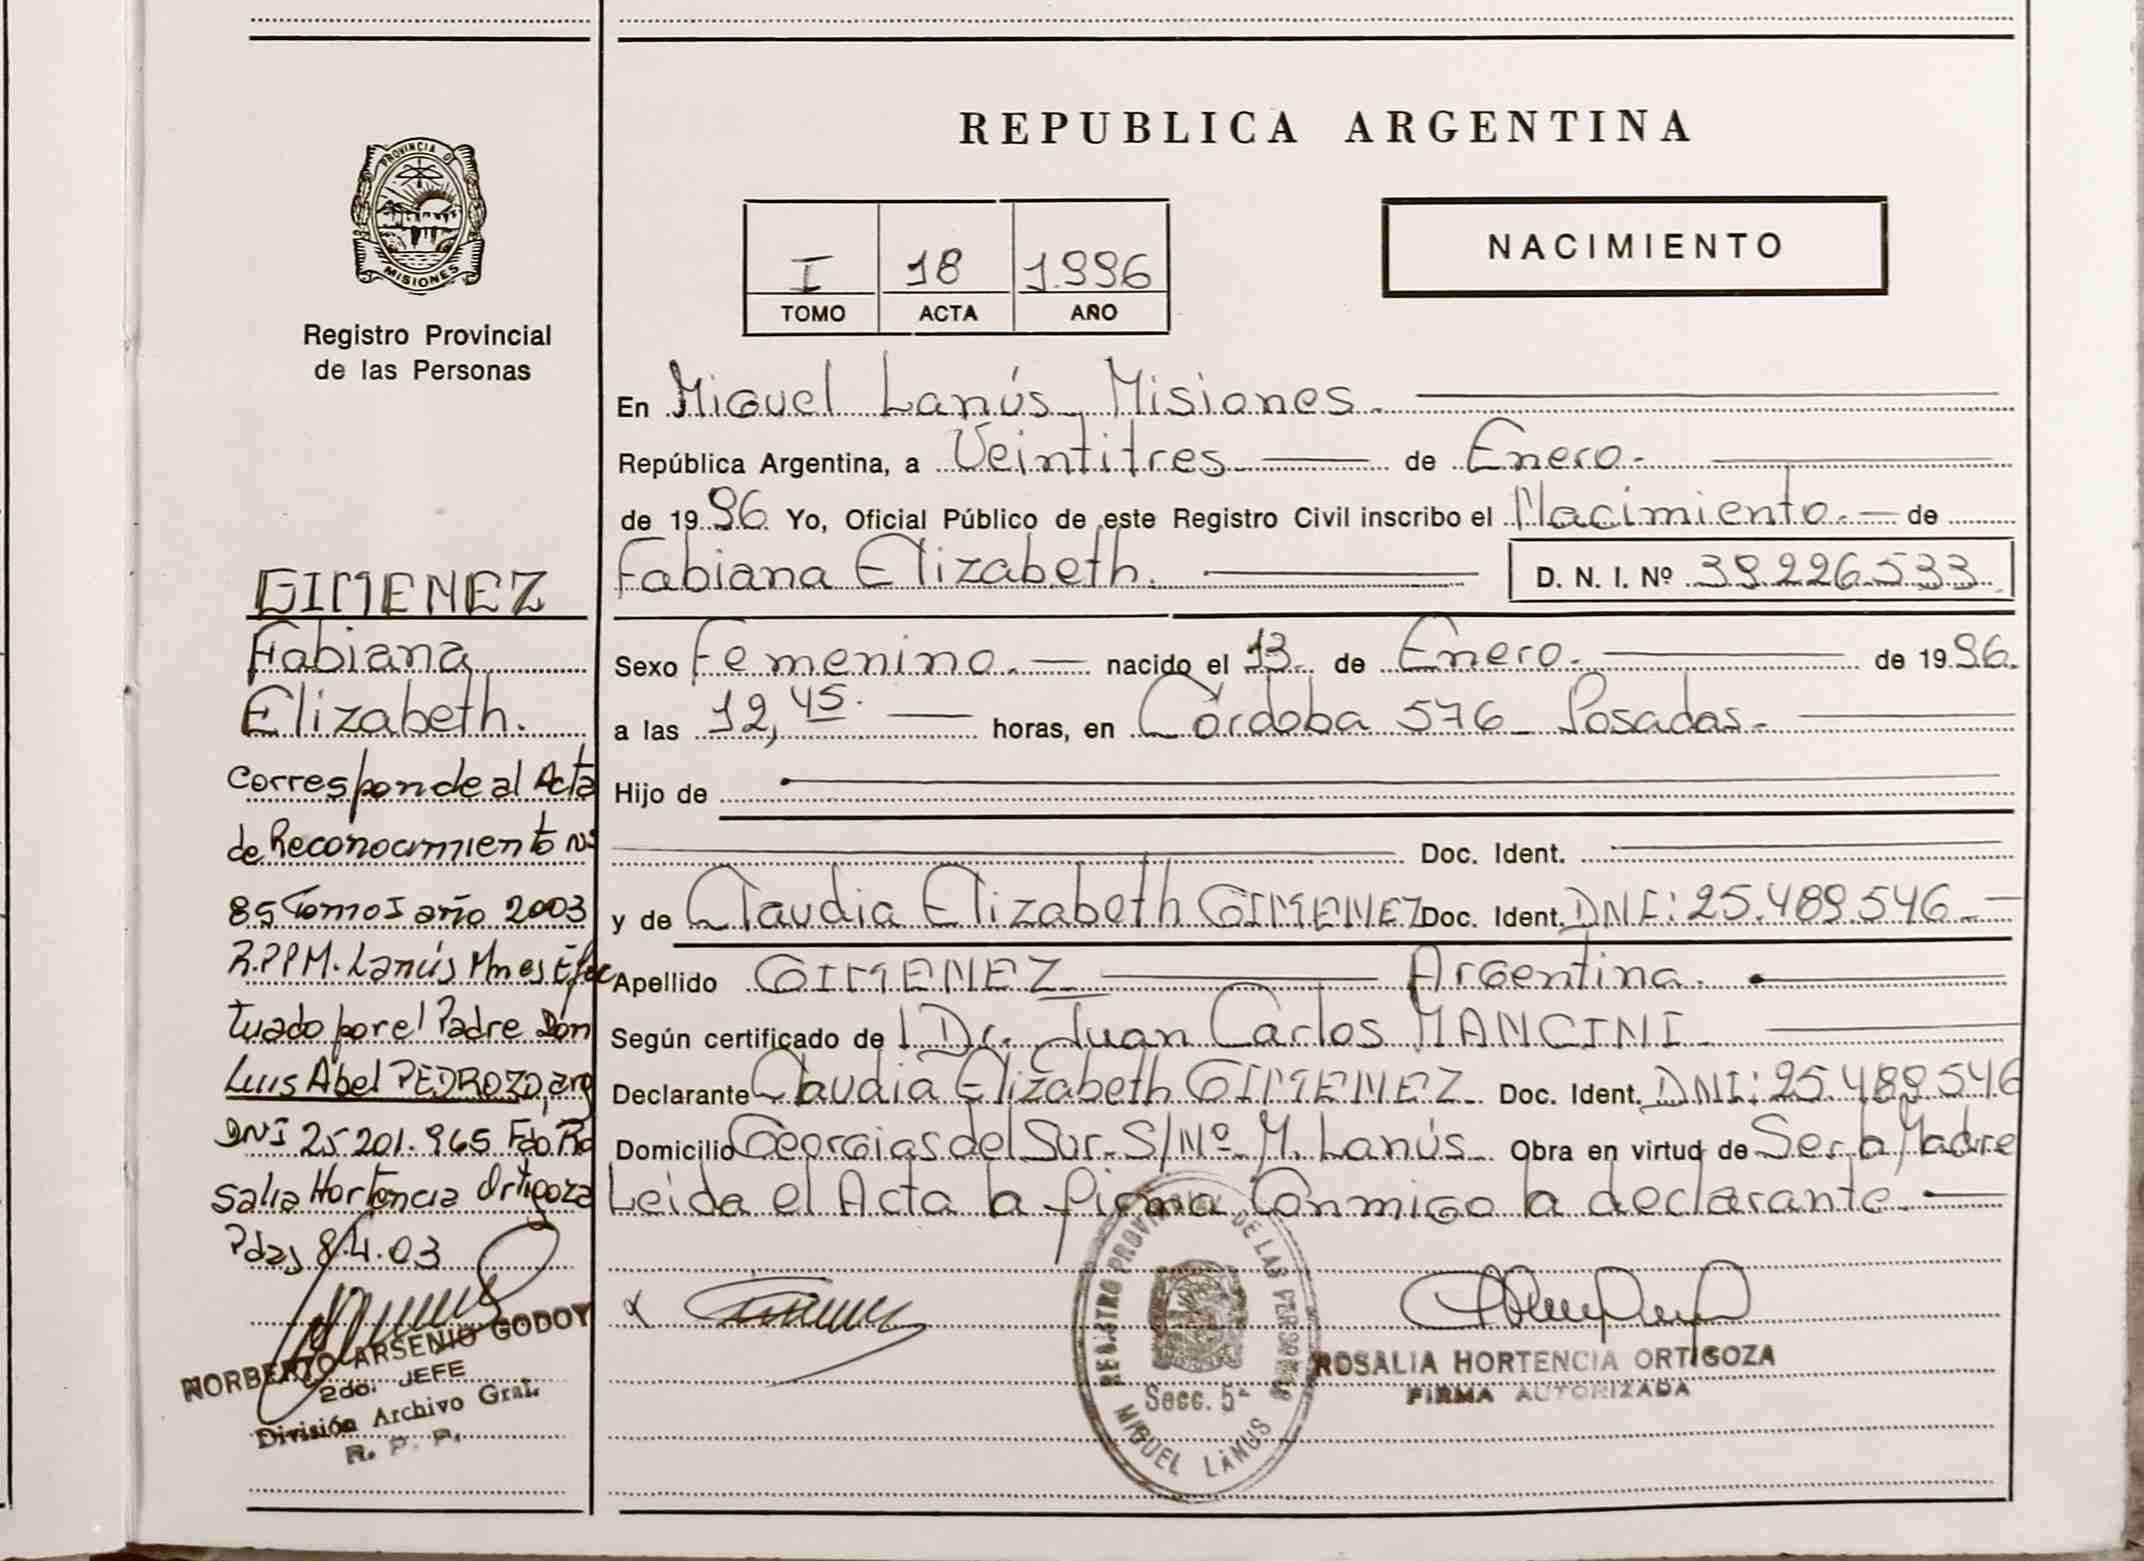 PROVINCIA DE
MISIONES
Registro Provincial
de las Personas
GIMENEZ
Fabiana
Elizabeth.
Corresponde al Acta
de Reconocimiento Nº
85 Tomo I año 2003
R.P.P M. Lanús Mnes Efec
tuado por el Padre Don
Luis Abel PEDROZO, arg
DNI 25 201.965 Fdo Ro
salia Hortencia Ortigoza
Pdas 8.4.03
NORBERTO ARSENIO GODOY
2do. JEFE
División Archivo Gral.
R. P. P.
REPUBLICA ARGENTINA
I 18 1.996
TOMO ACTA AÑO
NACIMIENTO
En Miguel Lanús, Misiones.
República Argentina, a Veintitres de Enero.
de 1996 Yo, Oficial Público de este Registro Civil inscribo el Nacimiento. de
Fabiana Elizabeth. D. N. I. Nº 39226533
Sexo Femenino. nacido el 13 de Enero. de 1996.
a las 12,45. horas, en Córdoba 576 Posadas.
Hijo de
Doc. Ident.
y de Claudia Elizabeth GIMENEZ Doc. Ident. DNI: 25.489.546.
Apellido GIMENEZ Argentina.
Según certificado de Dr. Juan Carlos MANCINI
Declarante Claudia Elizabeth GIMENEZ. Doc. Ident. DNI: 25.489.546
Domicilio Georgias del Sur. S/Nº M. Lanús. Obra en virtud de Ser la Madre
Leida el Acta la firma Conmigo la declarante.
REGISTRO PROVINCIAL DE LAS PERSONAS
Secc. 5ª
MIGUEL LANUS
ROSALIA HORTENCIA ORTIGOZA
FIRMA AUTORIZADA